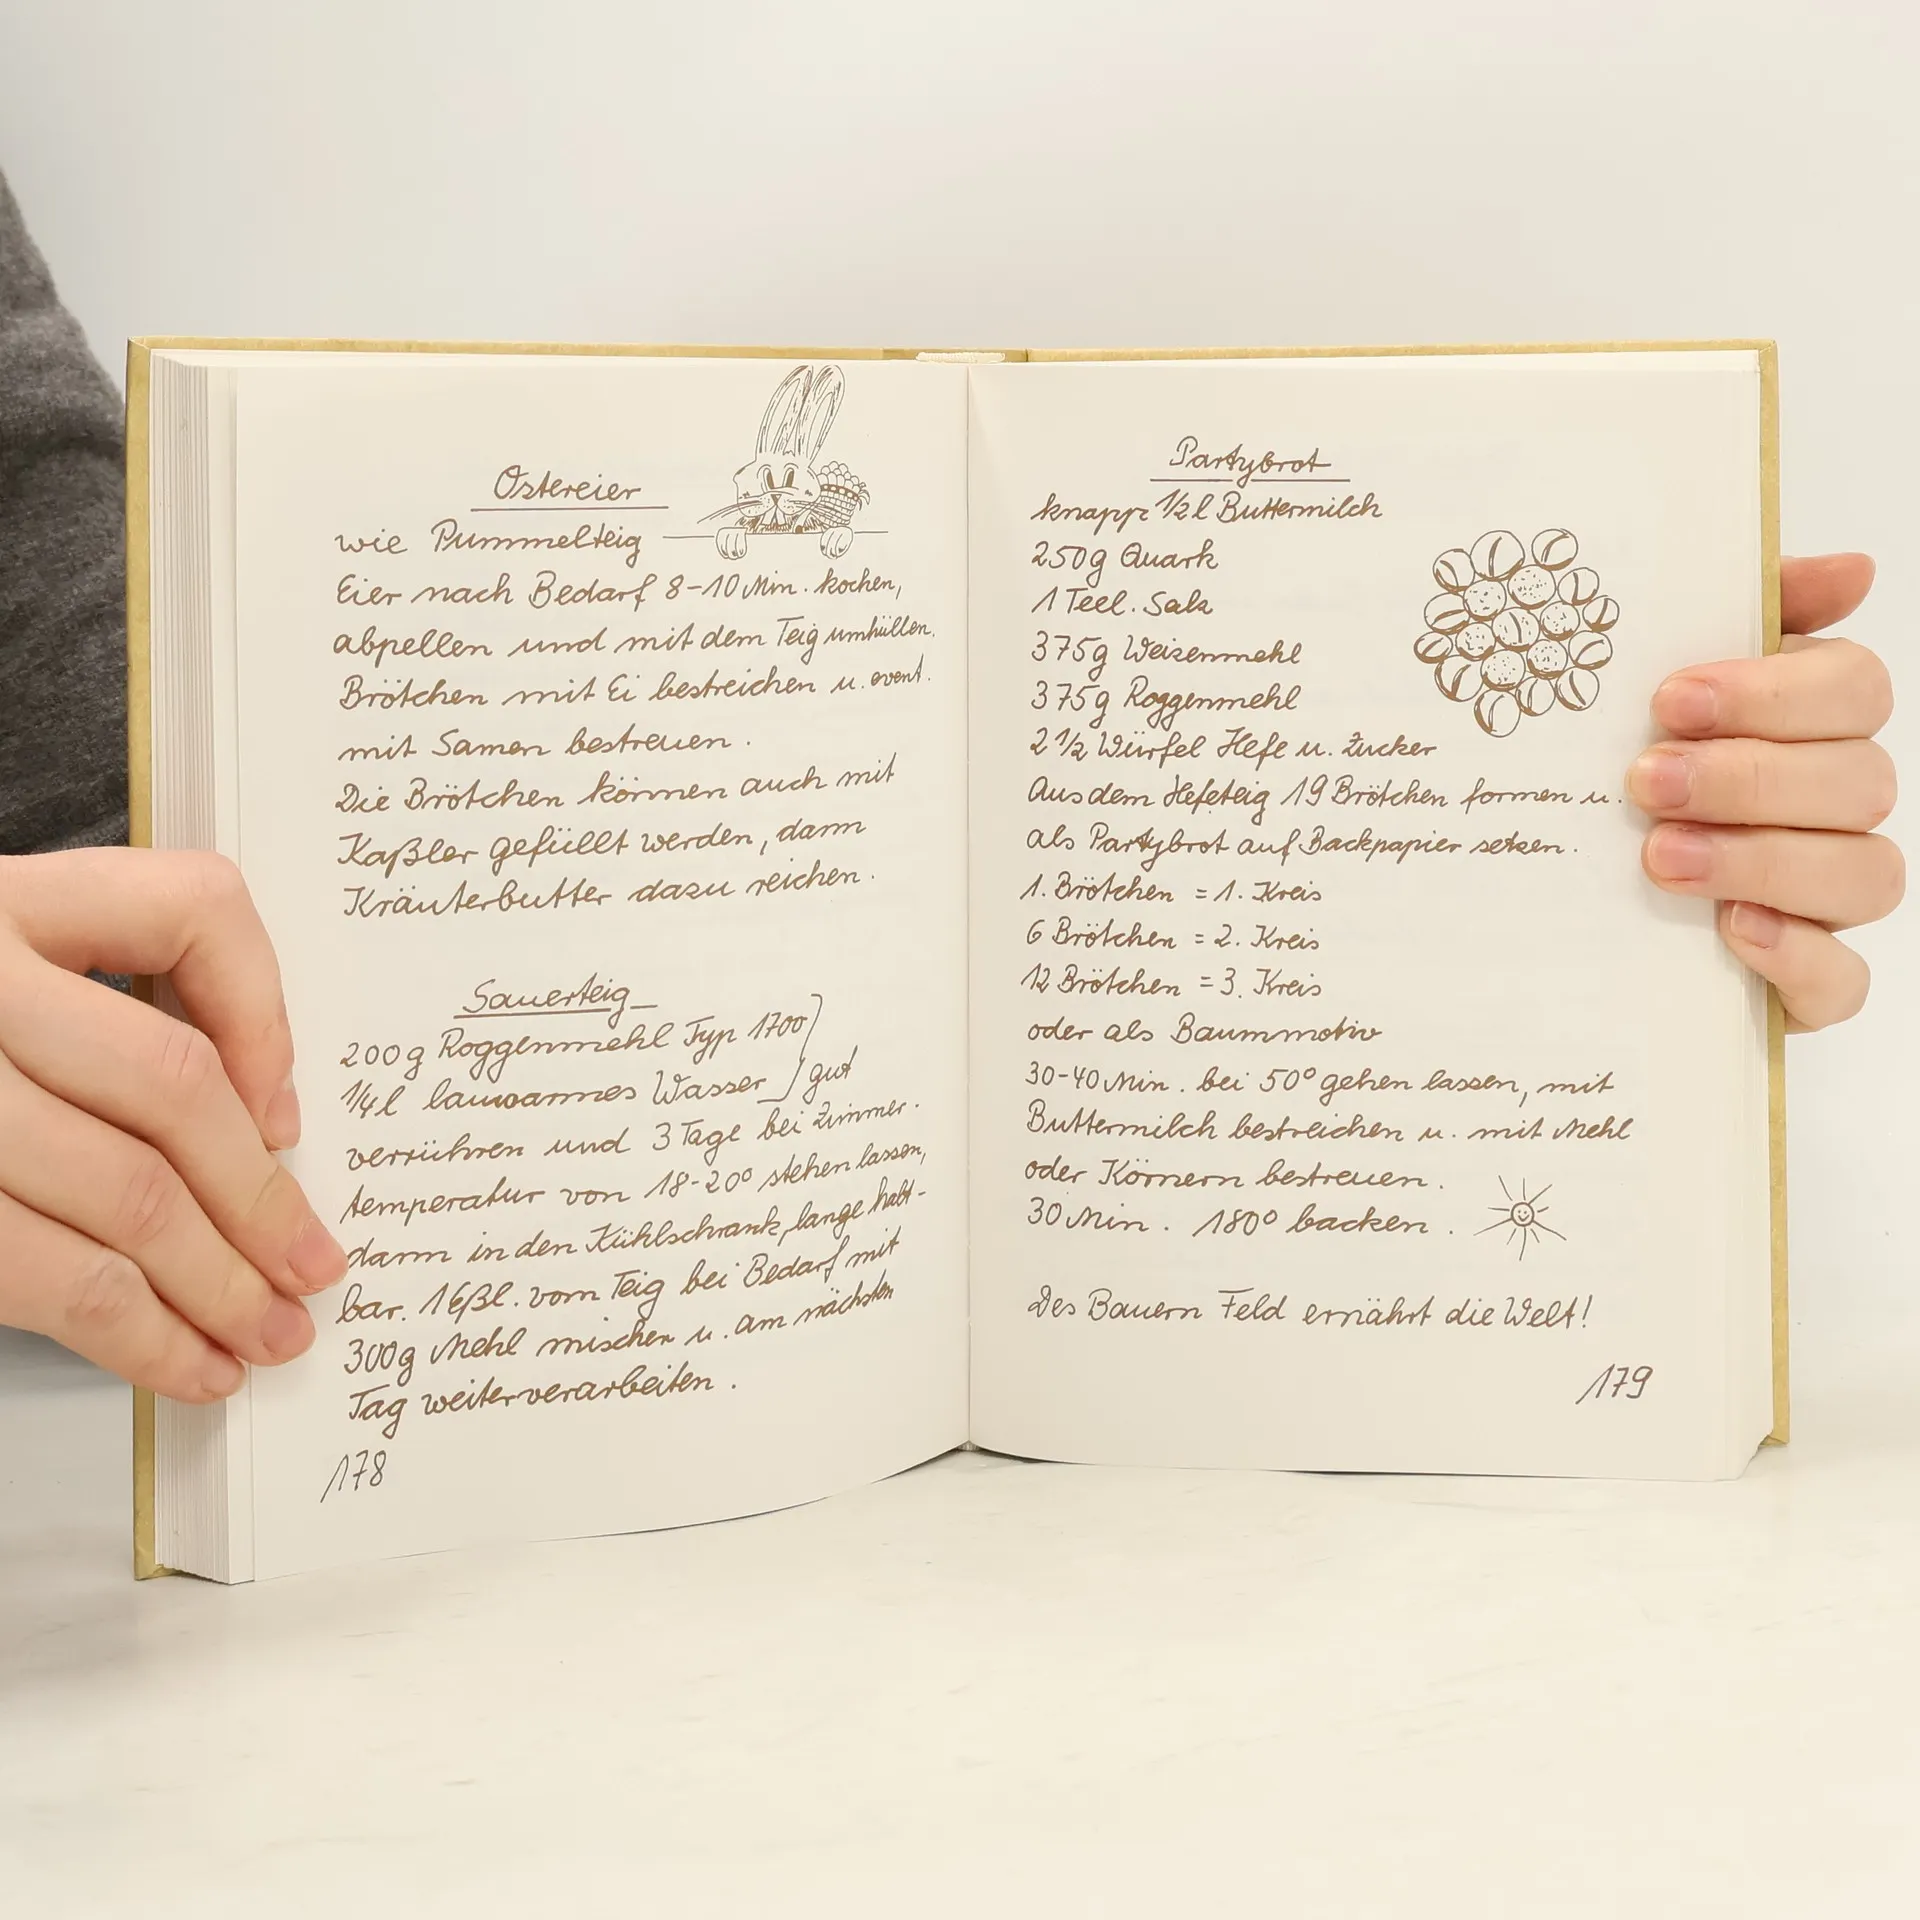 Ostereier
wie Pummelteig
Eier nach Bedarf 8-10 Min. kochen,
abpellen und mit dem Teig umhüllen.
Brötchen mit Ei bestreichen u. event.
mit Samen bestreuen.
Die Brötchen können auch mit
Kaßler gefüllt werden, dann
Kräuterbutter dazu reichen.
Sauerteig
200g Roggenmehl Typ 1700
1/4 l lauwarmes Wasser } gut
verrühren und 3 Tage bei Zimmer-
temperatur von 18-20° stehen lassen,
dann in den Kühlschrank, lange halt-
bar. 1 Eßl. vom Teig bei Bedarf mit
300g Mehl mischen u. am nächsten
Tag weiterverarbeiten.
178
Partybrot
knapp 1/2 l Buttermilch
250g Quark
1 Teel. Salz
375g Weizenmehl
375g Roggenmehl
2 1/2 Würfel Hefe u. Zucker
Aus dem Hefeteig 19 Brötchen formen u.
als Partybrot auf Backpapier setzen.
1. Brötchen = 1. Kreis
6 Brötchen = 2. Kreis
12 Brötchen = 3. Kreis
oder als Baummotiv
30-40 Min. bei 50° gehen lassen, mit
Buttermilch bestreichen u. mit Mehl
oder Körnern bestreuen.
30 Min. 180° backen.
Des Bauern Feld ernährt die Welt!
179